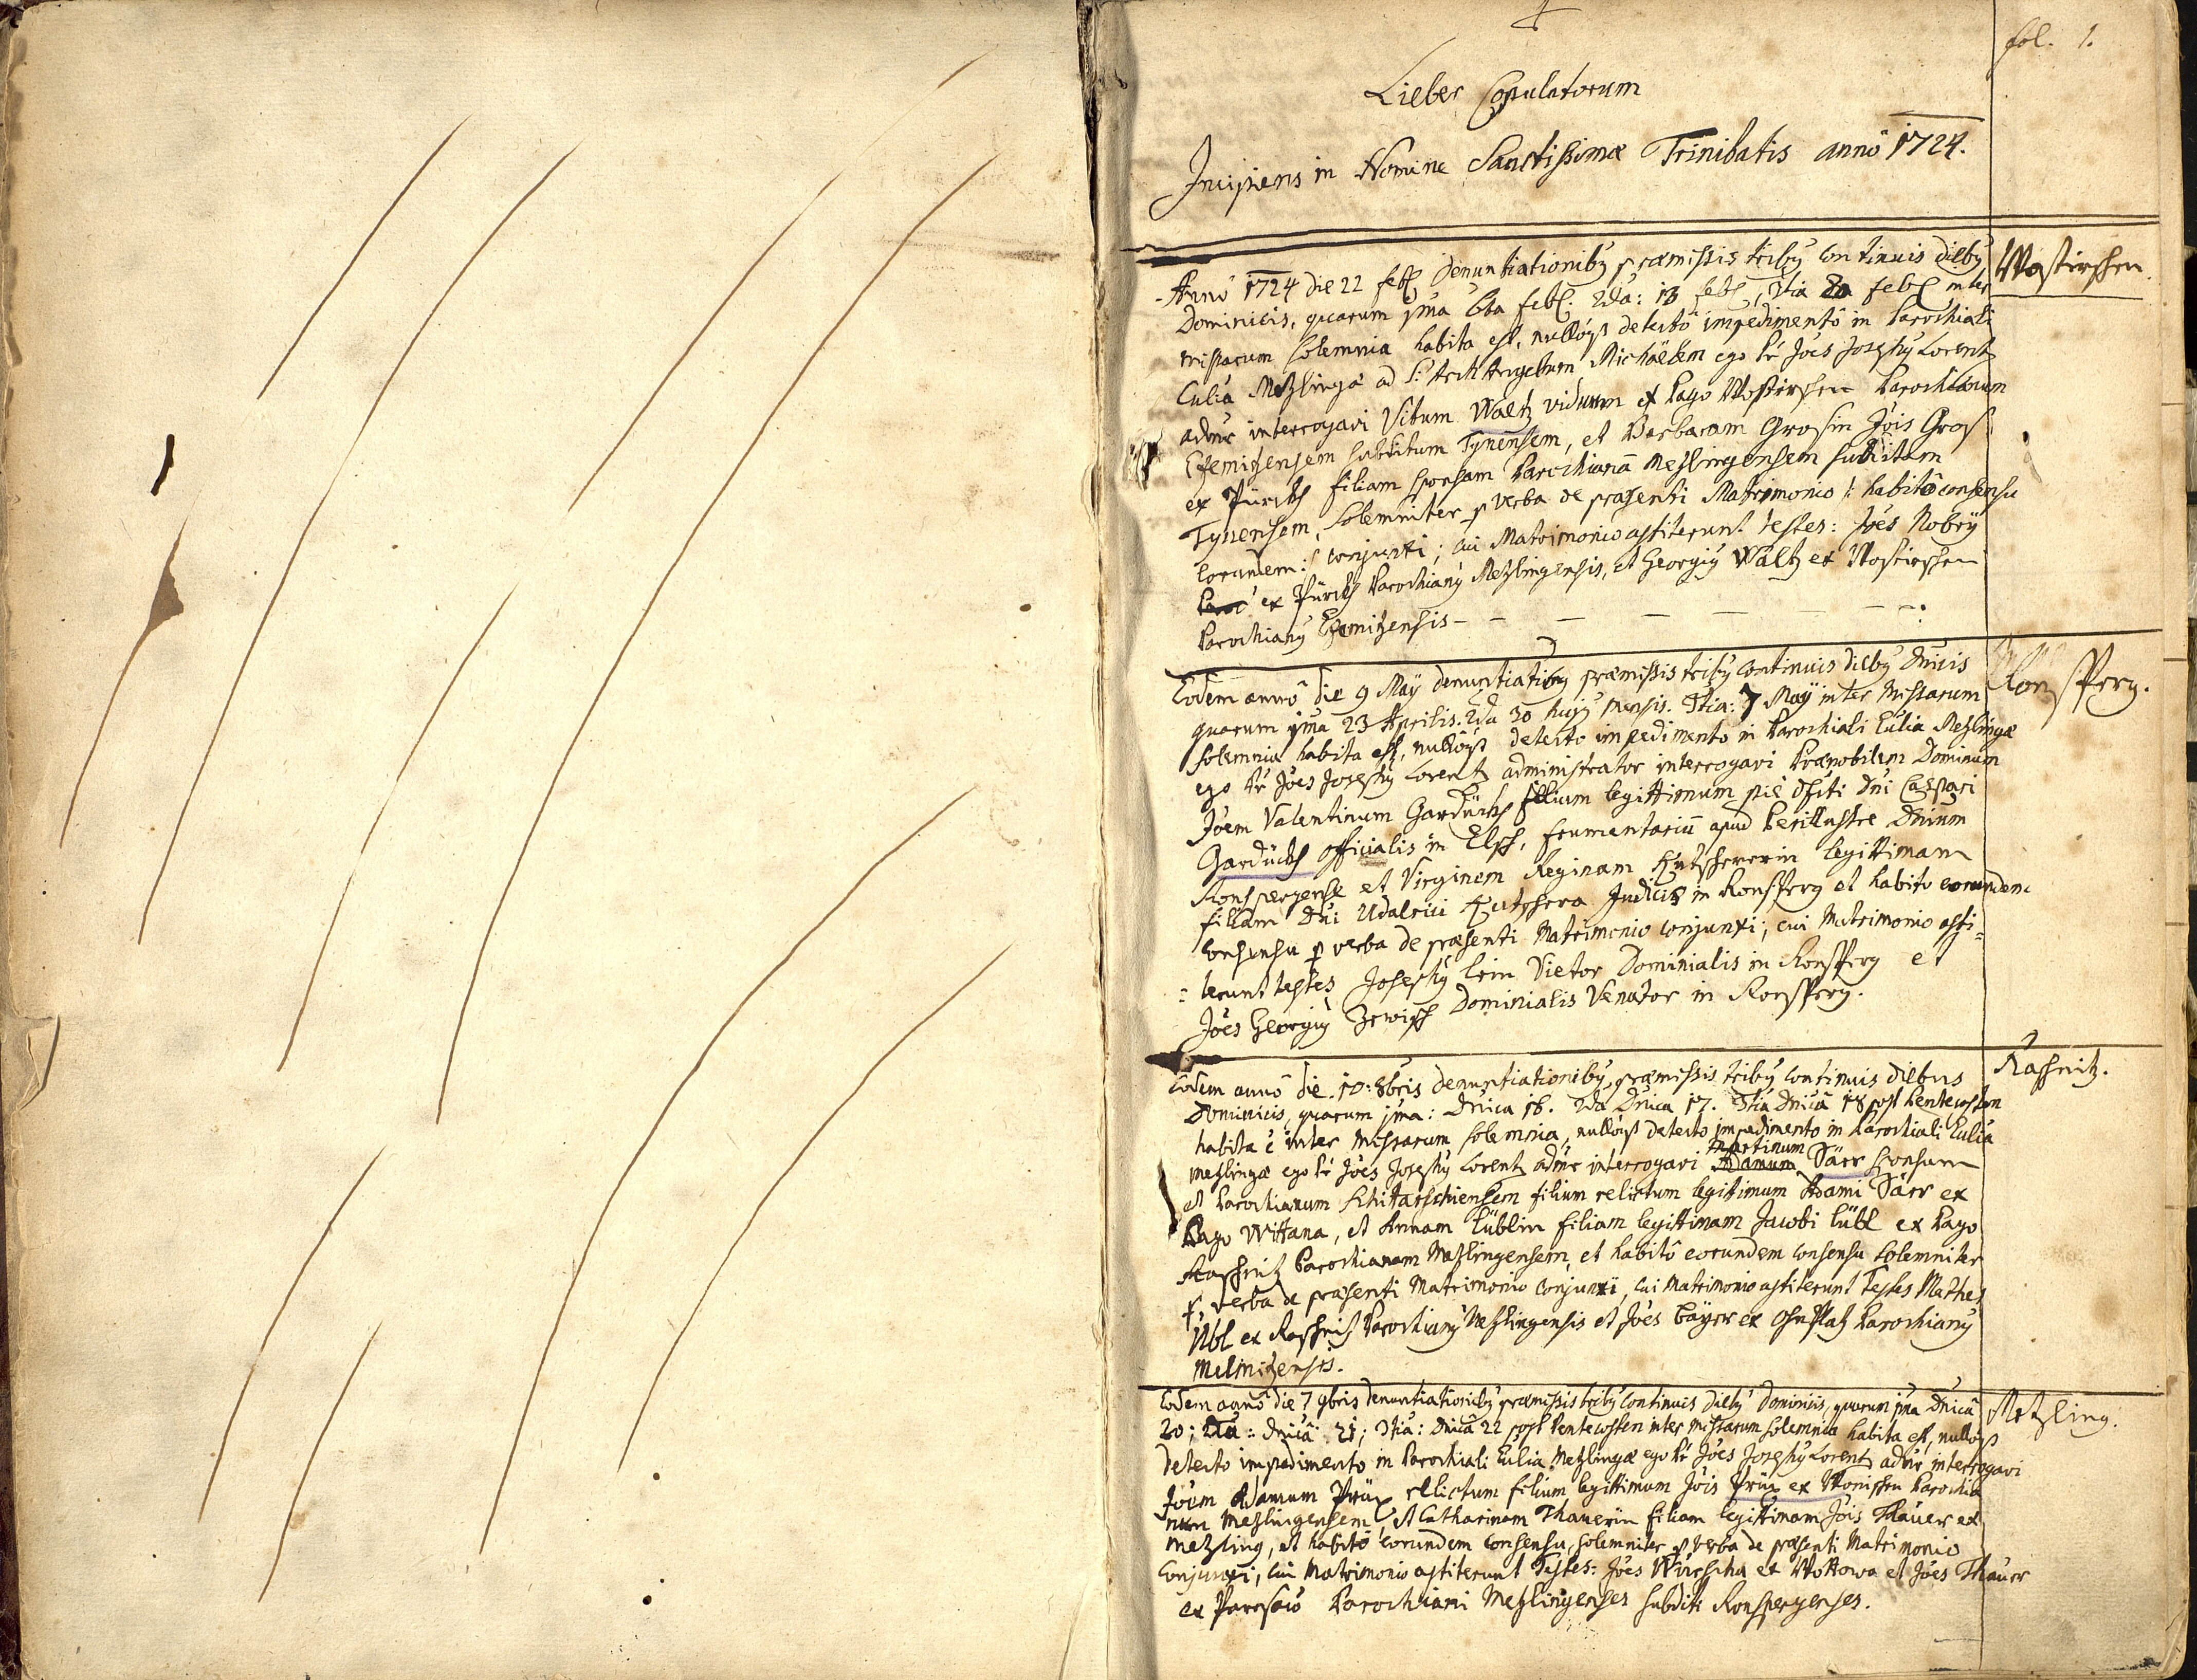 fol. 1.
Lieber Copulatorum
Incipiens in Nomine Sanctissimæ Trinitatis annô 1724.
Wostirschen
Annô 1724 die 22 feb denuntiationiby præmissis triby continuis dieby
Dominicis, quarum 1ma 6ta feb: 2da: 13 feb, 3tia 20 feb inter
missarum solemnia habita est, nullóq detectô impedimentô in Parochiali
Ecclia Metzlingæ ad S: Arch Angelum Michäelem ego Pr Joês Josephy Lorentz
admr interrogavi Vitum Waltz viduum ex Pago Wostirschen Parochianum
subditum Tynensem, et Barbaram Grosin Jôis Gros
ex Pürckh filiam sponsam Parochianã Metzlingensem subditam
Tynensem, solemniter p verba de præsenti Matrimonio /: habitô consensu
eorundem :/ conjunxi; cui Matrimonio astiterunt testes: Joês Nobry
ex Pürckh Parochiany Metzlingensis, et Georgiy Waltz ex Wostirschen
Parochiany
Ronsperg.
Eodem annô die 9 Maÿ denuntiationiby præmissis triby continuis dieby Dnicis
quarum 1ma 23 Aprilis. 2da 30 hujy mensis. 3tia: 7 Maÿ inter missarum
solemnia habita est, nullôq detecto impedimento in Parochiali Ecclia Metzlingæ
ego Pr Joês Josephy Lorentz administrator interrogavi Prænobilem Dominum
Joêm Valentinum Gardückh filium legittimum piê dfcti Dni Caspari
Gardückh officialis in Elsch, frumentariũ apud Perillustre Dnium
Ronspergense et Virginem Reginam Kutscherin legittimam
filiam Dni Udalrici Kutschera Judicis in Ronsperg et habito eorundem
consensu p verba de præsenti Matrimonio conjunxi; cui Matrimonio asti=
=terunt testes Josephy Lein Vietor Dominialis in Ronsperg et
Joês Georgiy Dominialis Venator in Ronsperg.
Raschnitz.
Eodem annô die 10: 8bris denuntiationiby præmissis triby continuis diebus
Dominicis, quarum 1ma: Dnica 16. 2da Dnica 17. 3tia Dnicâ 18 post Pentecosten
habita ê inter Missarum solemnia, nullôq detecto impedimento in Parochiali Ecclia
Metzlingæ ego Pr Joês Josephy Lorentz admr interrogavi Adamum Martinum Särr sponsum
et Parochianum filium relictum legittimum Adami Särr ex
Pago Wittana, et Annam Lüblin filiam legittimam Jacobi Lübl ex Pago
Raschnitz Parochianam Metzlingensem, et habitô eorundem consensu solemniter
p verba de præsenti Matrimonio conjunxi, cui Matrimonio astiterunt Testes Mathes
ex Raschnitz Parochiany Metzlingensis et Joês Bäyer ex Parochiany
Melmitzensis.
Metzling.
Eodem annô die 7 9bris denuntiationiby præmissis triby continuis dieby Dominicis, quarum 1ma Dnicâ
20; 2da: Dnicâ 21; 3tia: Dnicâ 22 post Pentecosten inter missarum solemnia habita est, nullôq
detecto impedimento in Parochiali Ecclia Metzlingæ ego Pr Joês Josephy Lorentz admr interrogavi
Joêm Adamum Prüx relictum filium legittimum Jôis Prüx ex Parochia
num Metzlingensem, et Catharinam Thauerin filiam legittimam Jôis Thauer ex
Metzling, et habitô eorundem consensu, solemniter p verba de præsenti Matrimonio
conjunxi, cui Matrimonio astiterunt Testes: Joês ex Wottowa et Joês Thauer
ex Parochiani Metzlingenses subditi Ronspergenses.